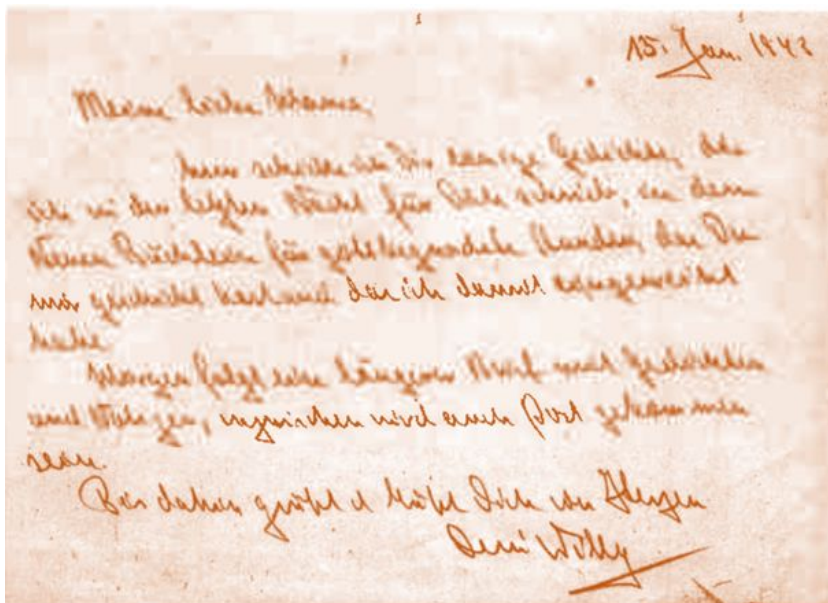 15. Jan. 1943
Meine liebe Johanna,
schicke ich Dir einige Gedichte, die
ich in der letzten Nacht für Dich schrieb, in dem
Büchlein für gottbegnadete Stunden, das Du
mir geschickt hast und das ich damit eingeweiht
habe.
Morgen folgt ein längerer Brief mit Gedichten
und, inzwischen wird auch Post gekommen
sein.
Bis dahin grüßt u küßt Dich von Herzen
Dein Willy